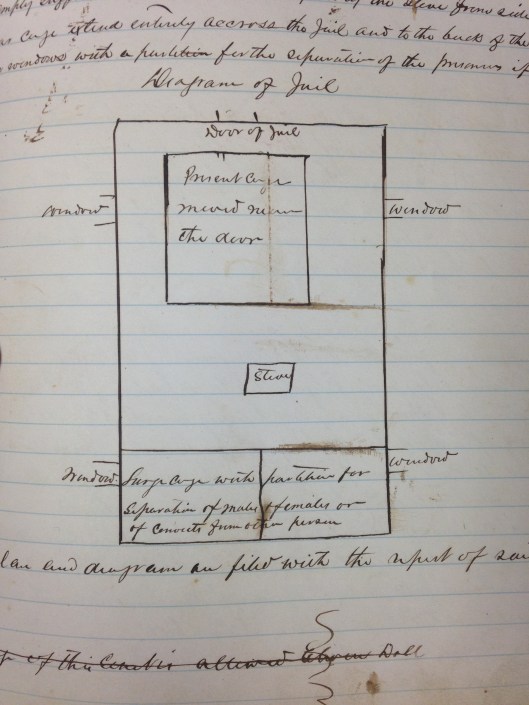 of the stove from side
cage extend entirely accross the Jail and to the back of the
windows with a partition for the separation of the prisoners if
Diagram of Jail
Door of Jail
Present Cage
moved near
the door
window
window
Stove
window
window
Large Cage with partition for
Separation of males & females or
of convicts from other person
plan and diagram are filed with the report of said
of this Court is allowed